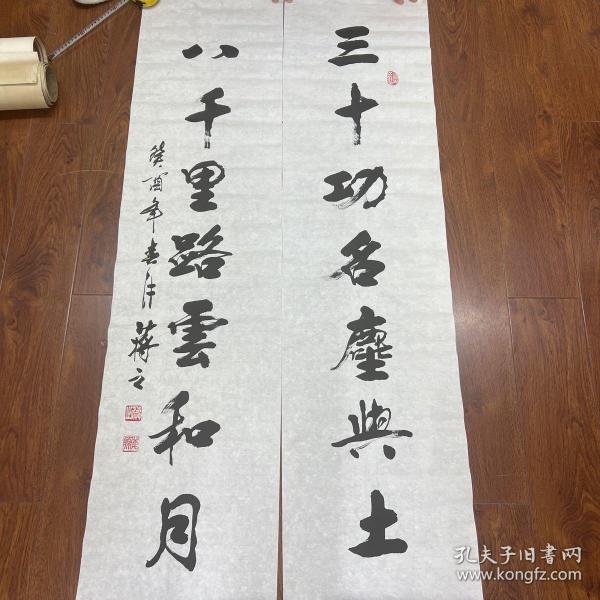 三十功名塵與土
八千里路雲和月
癸酉年春月 蔣立
孔夫子旧書网
www.kongfz.com